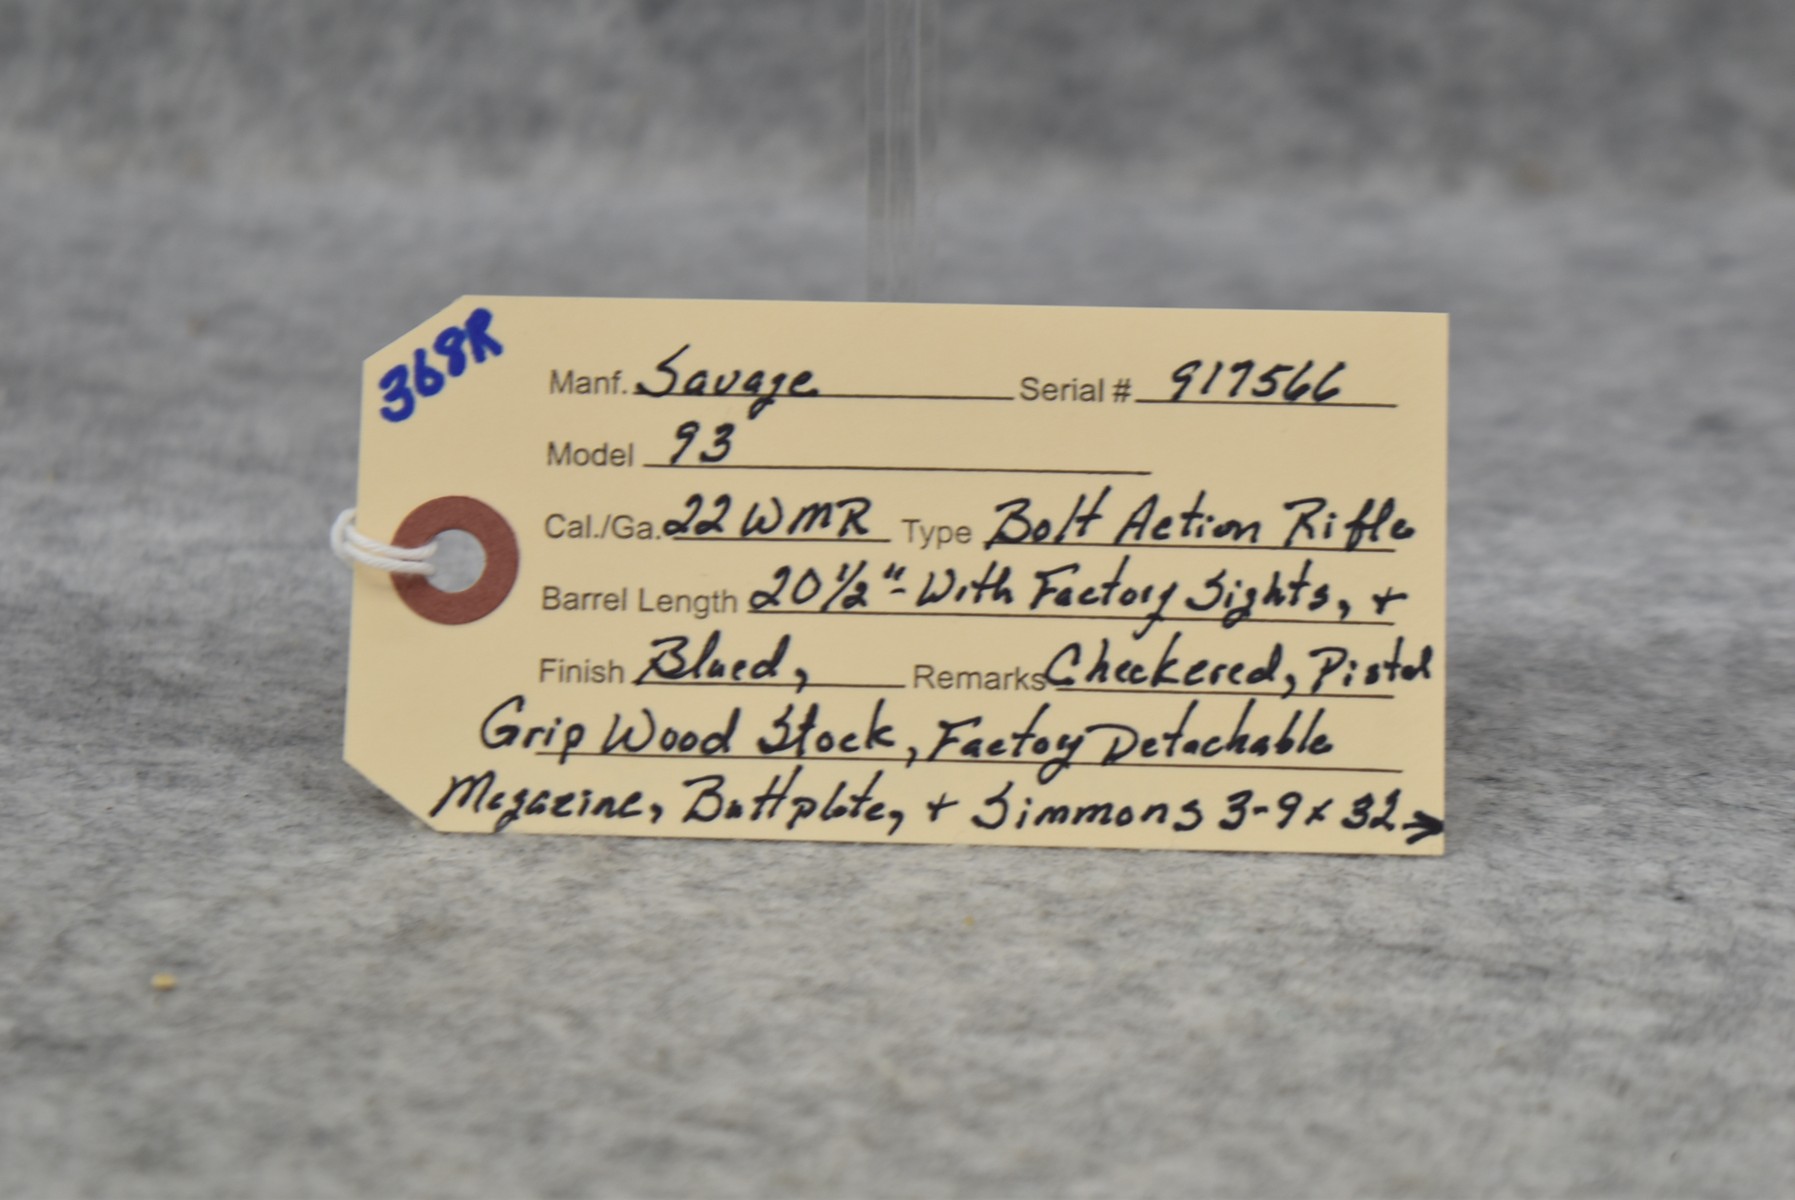 368R
Manf. Savage Serial # 917566
Model 93
Cal./Ga. 22 WMR Type Bolt Action Rifle
Barrel Length 20 1/2" - With Factory Sights, +
Finish Blued, Remarks Checkered, Pistol
Grip Wood Stock, Factoy Detachable
Magazine, Buttplate, + Simmons 3-9x32→